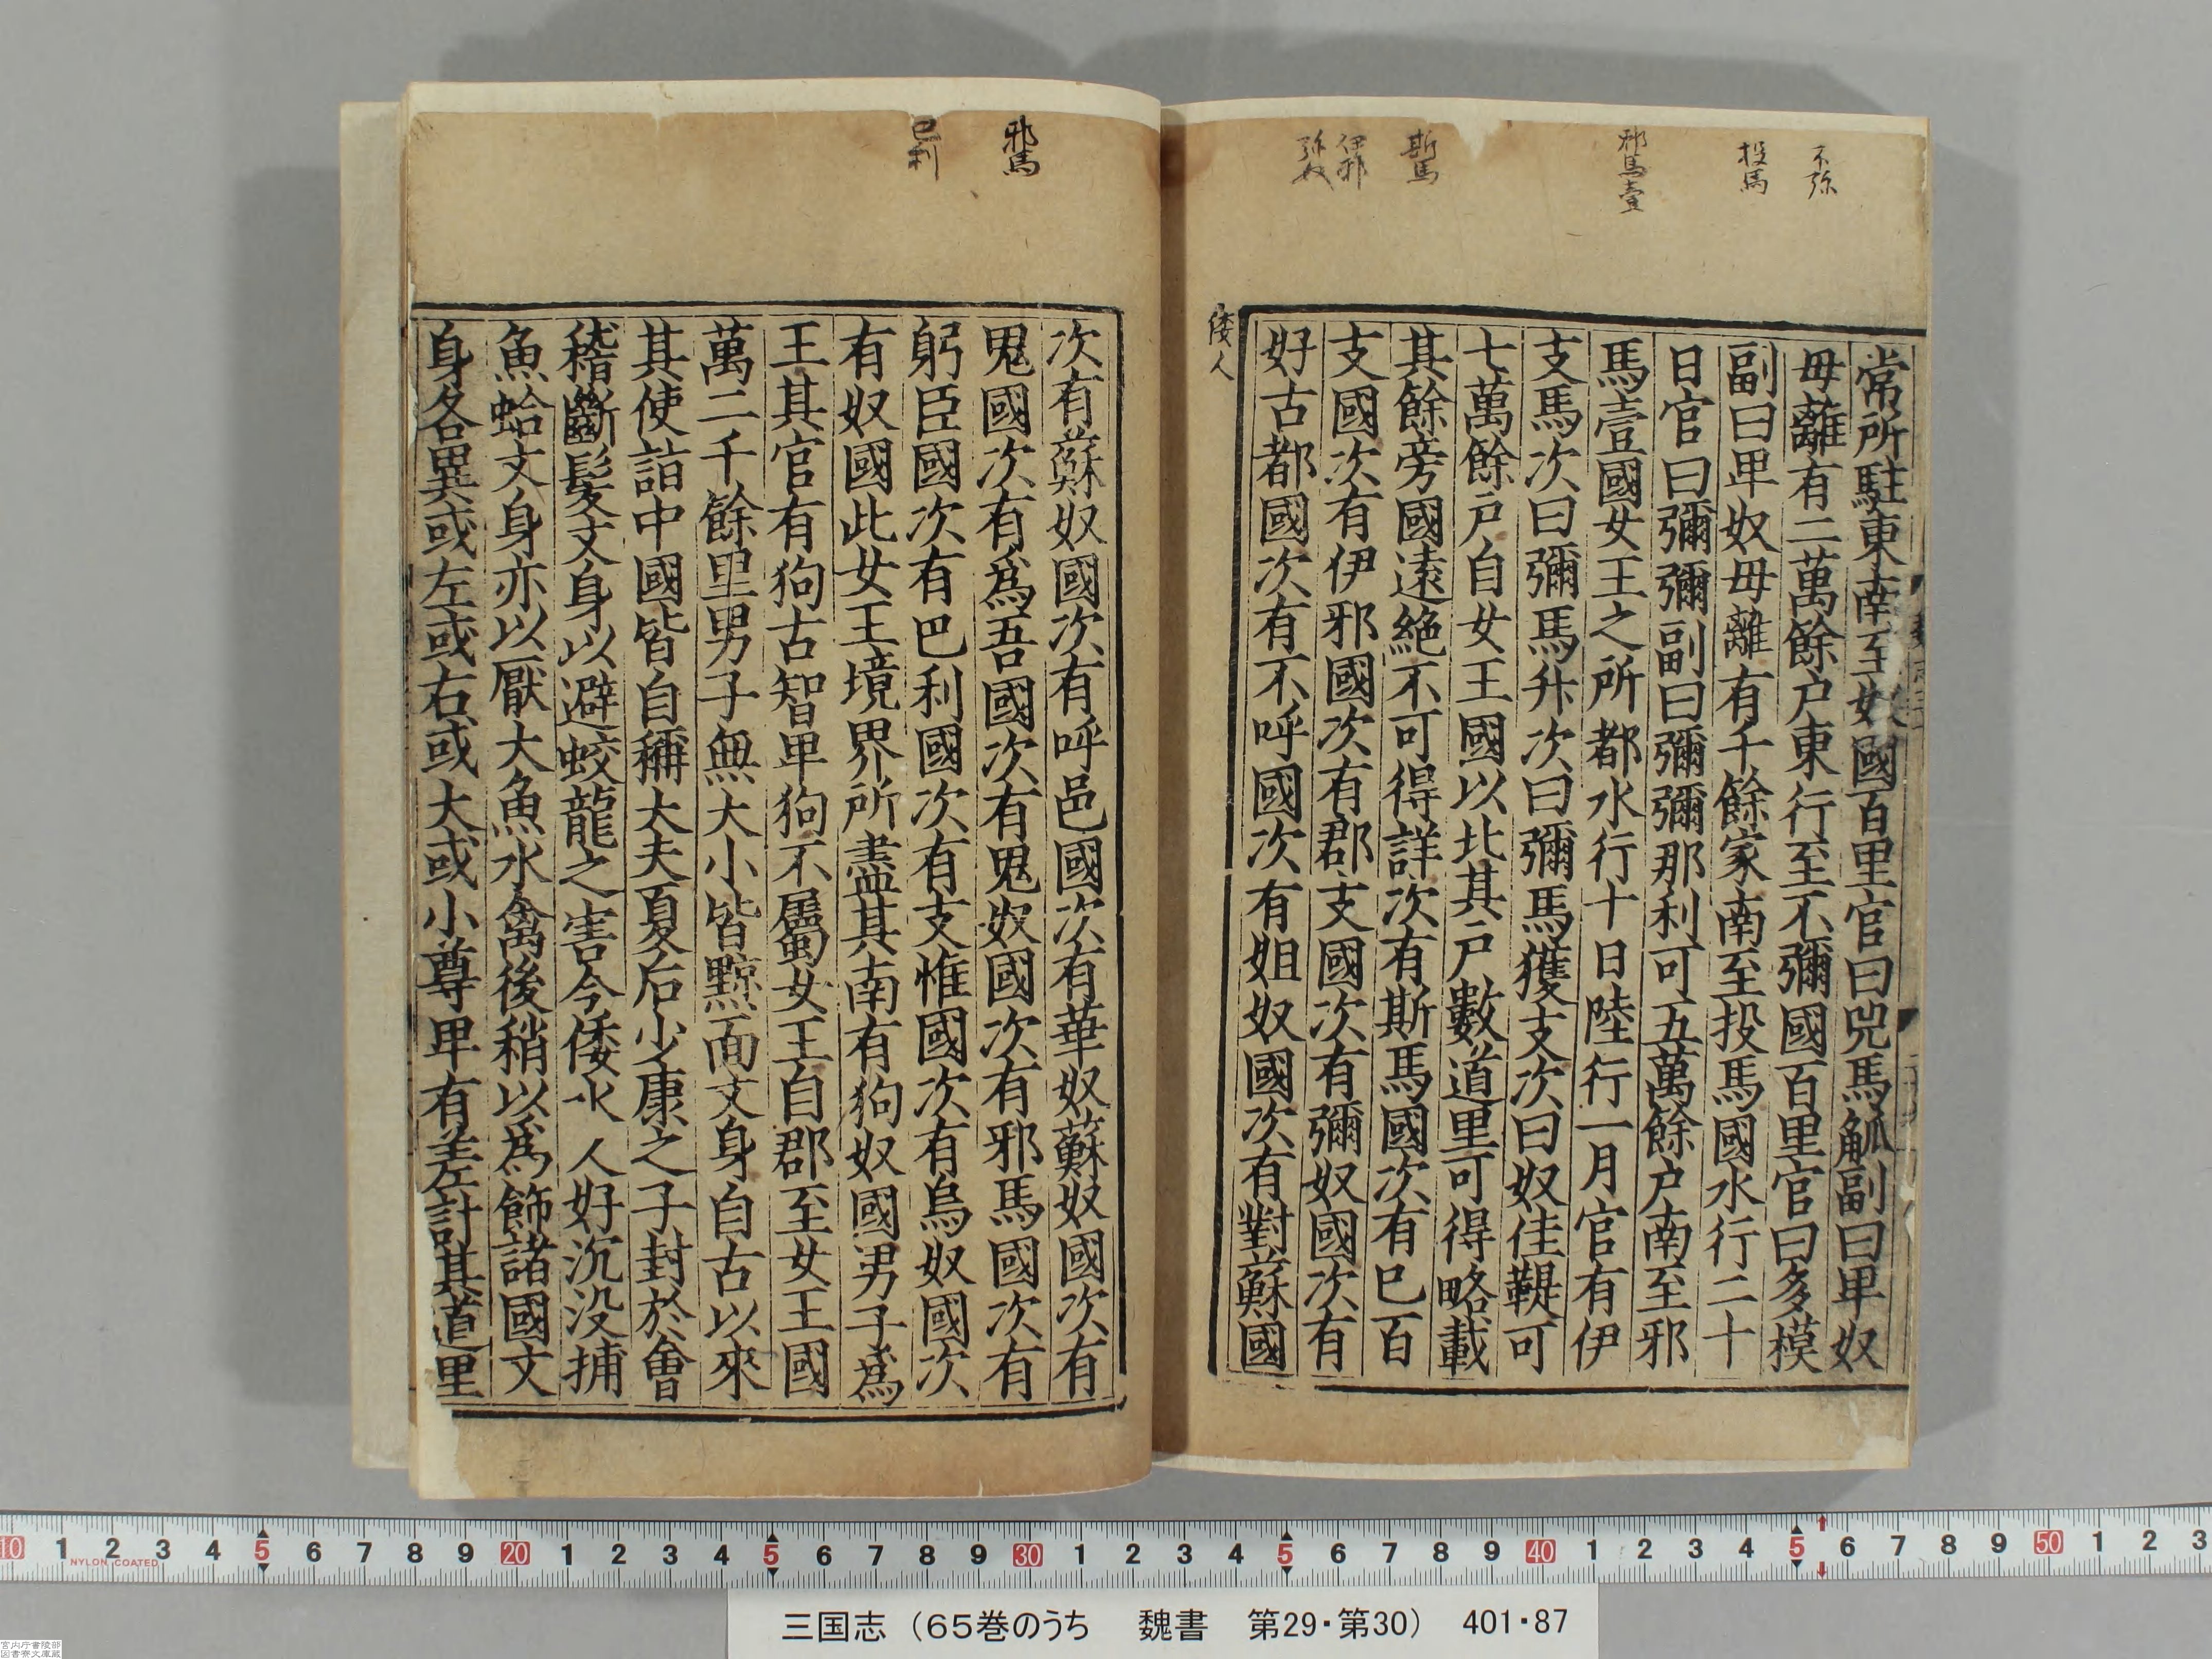 不弥
投馬
邪馬壹
斯馬
伊邪
弥奴
常所駐東南至奴國百里官曰兕馬觚副曰卑奴
毋離有二萬餘户東行至不彌國百里官曰多模
副曰卑奴毋離有千餘家南至投馬國水行二十
日官曰彌彌副曰彌彌那利可五萬餘户南至邪
馬壹國女王之所都水行十日陸行一月官有伊
支馬次曰彌馬升次曰彌馬獲支次曰奴佳鞮可
七萬餘戸自女王國以北其戸數道里可得略載
其餘旁國遠絶不可得詳次有斯馬國次有巳百
支國次有伊邪國次有郡支國次有彌奴國次有
好古都國次有不呼國次有姐奴國次有對蘇國
倭人
邪馬
巴利
次有蘇奴國次有呼邑國次有華奴蘇奴國次有
鬼國次有爲吾國次有鬼奴國次有邪馬國次有
躬臣國次有巴利國次有支惟國次有烏奴國次
有奴國此女王境界所盡其南有狗奴國男子爲
王其官有狗古智卑狗不屬女王自郡至女王國
萬二千餘里男子無大小皆黥面文身自古以來
其使詣中國皆自稱大夫夏后少康之子封於會
稽斷髮文身以避蛟龍之害今倭水人好沉没捕
魚蛤文身亦以厭大魚水禽後稍以爲飾諸國文
身各異或左或右或大或小尊卑有差計其道里
10 1 2 3 4 5 6 7 8 9 20 1 2 3 4 5 6 7 8 9 30 1 2 3 4 5 6 7 8 9 40 1 2 3 4 5 6 7 8 9 50 1 2 3
NYLON COATED
三国志（65巻のうち　魏書　第29・第30）　401・87
宮内庁書陵部
図書寮文庫蔵